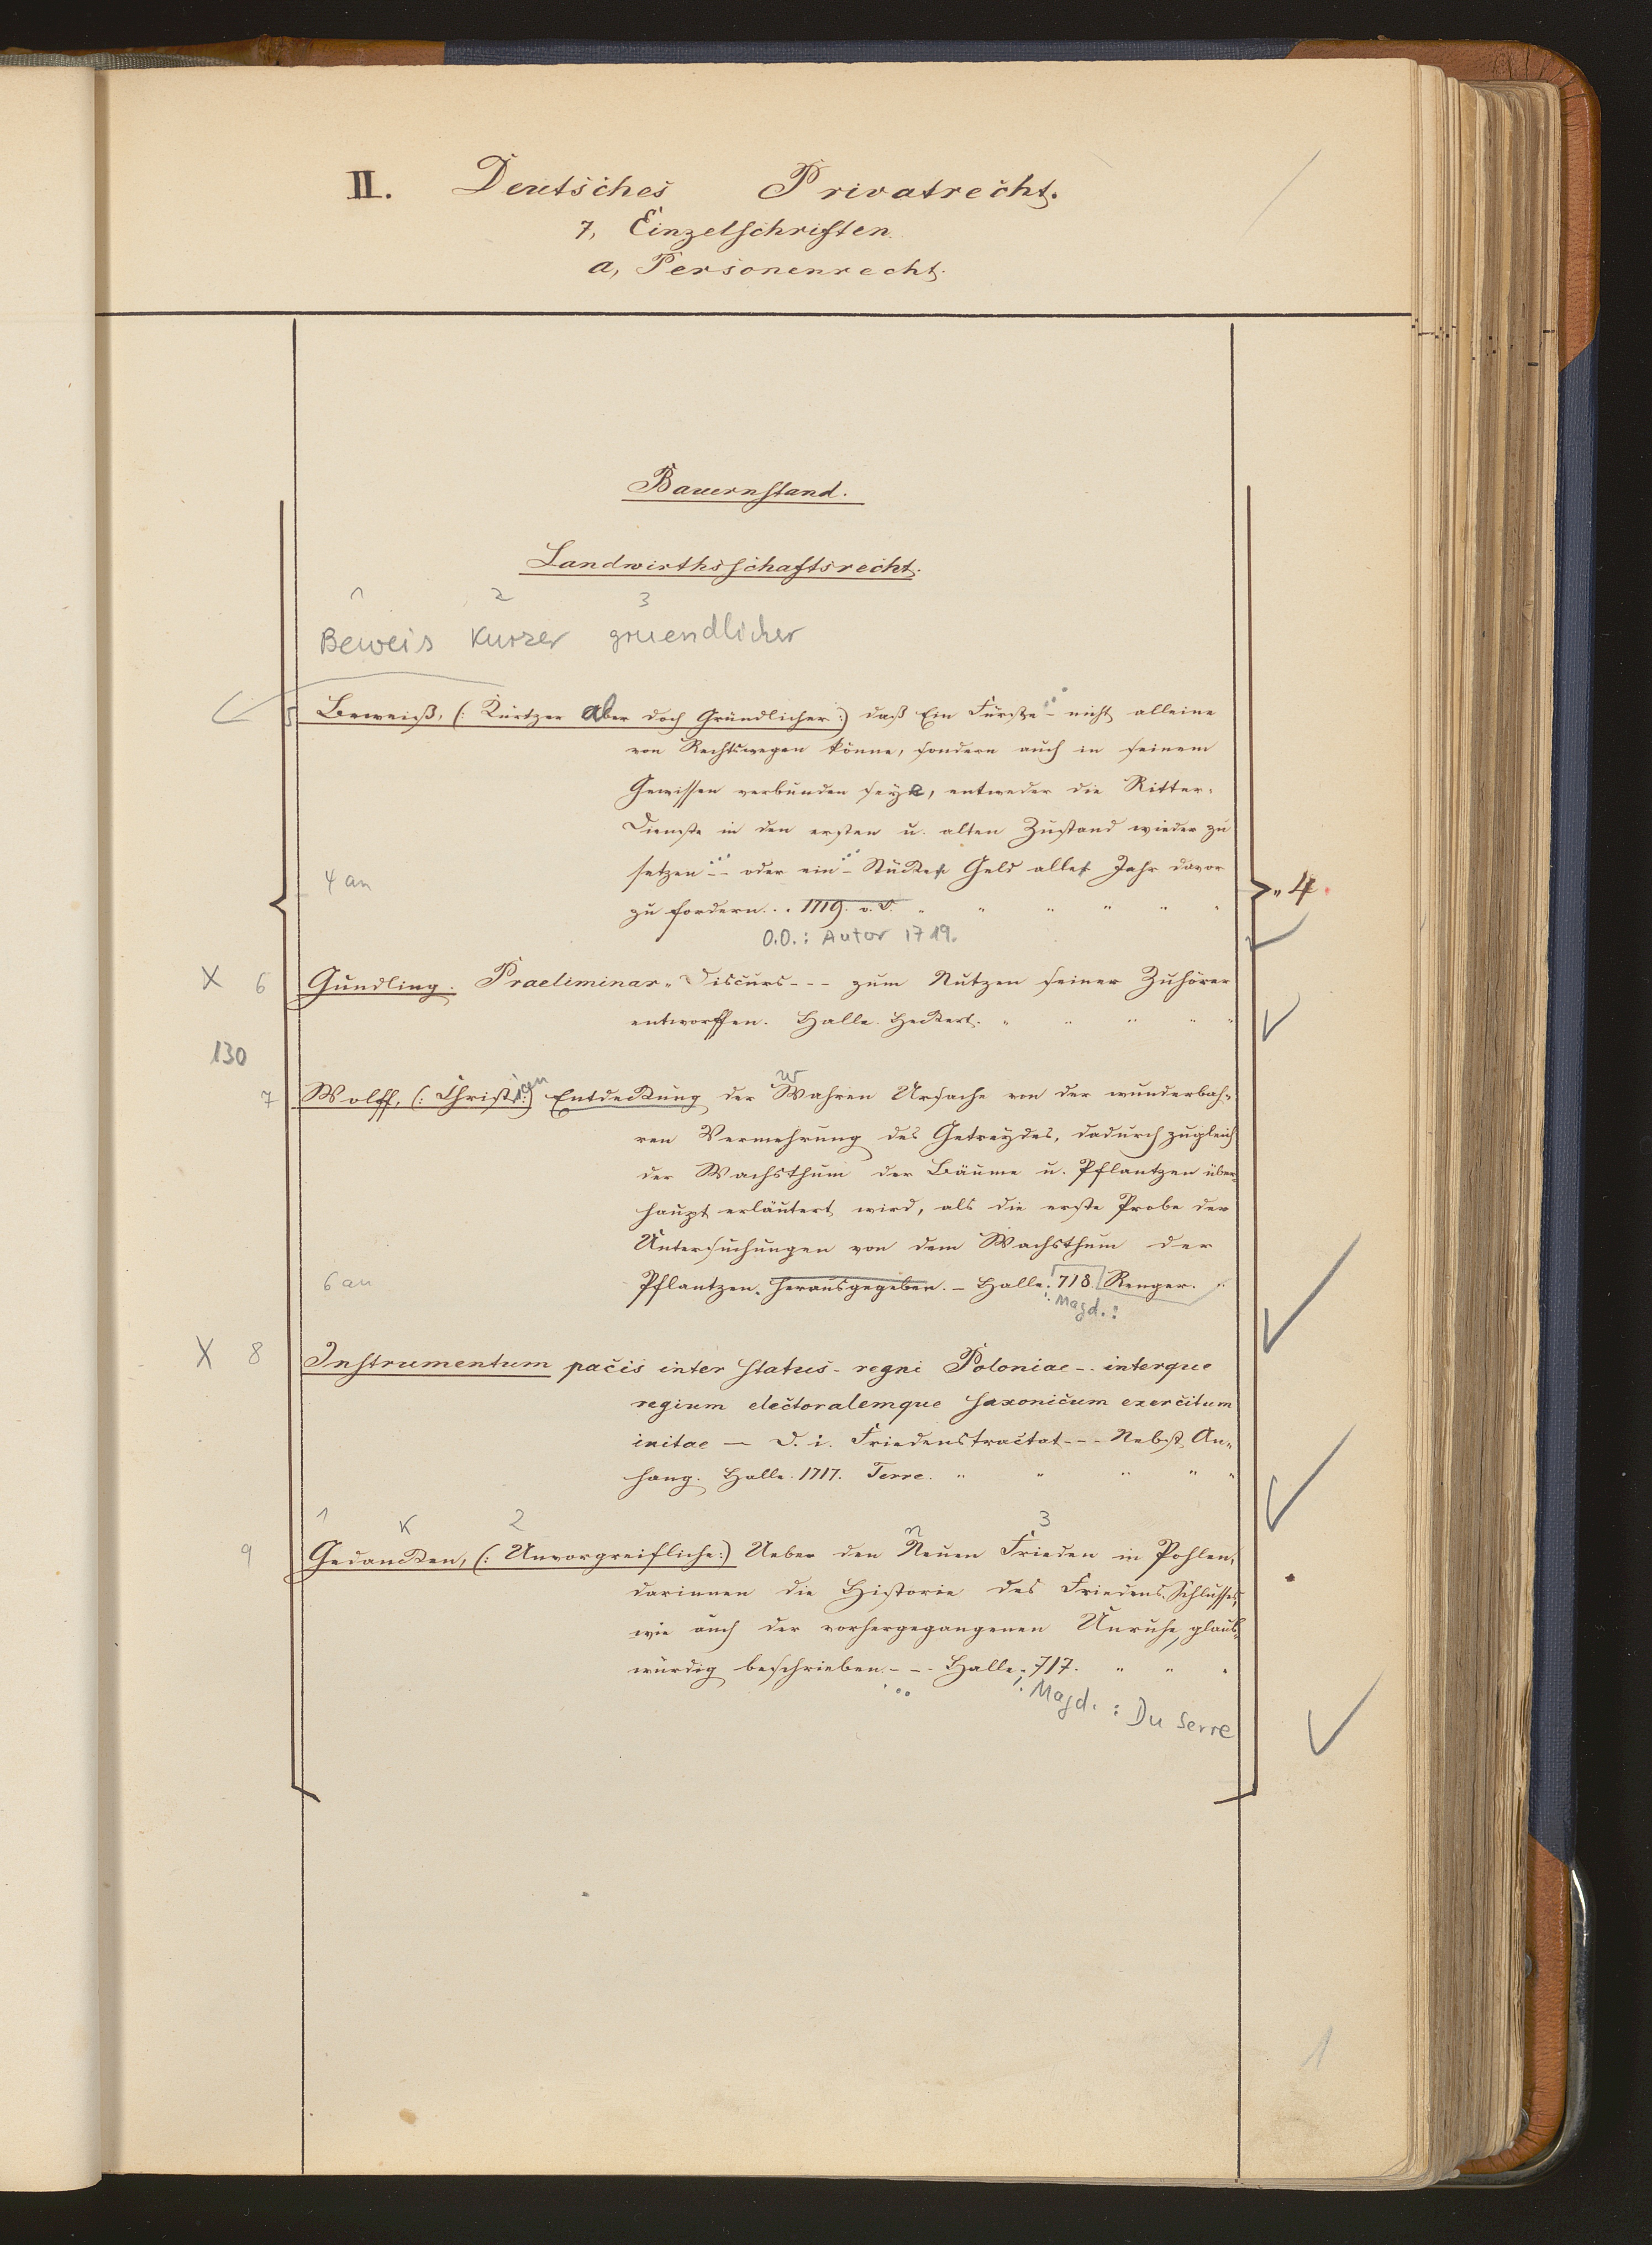 II. Deutsches Privatrecht.
7, Einzelschriften.
a, Personenrecht.
Bauernstand.
Landwirthsschaftsrecht.
1 2 3
Beweis Kurzer gruendlicher
5 Beweiß, (: Kurtzer aber doch Gründlicher:) daß Ein Fürst - nicht alleine
von Rechtswegen könne, sondern auch in seinem
Gewissen verbunden seye, entweder die Ritter-
Dienste in den ersten u. alten Zustand wieder zu
setzen -- oder ein - Stücke Geld alle Jahr davor
4 an
zu fordern... 1719. o. O. " " " " " "
„ 4.
O.O.: Autor 1719.
X 6 Gundling. Praeliminar-Discurs --- zum Nutzen seiner Zuhörer
entworffen. Halle. Heckert. " " " " "
130
7 Wolff, (: Christian:) Entdeckung der Wahren Ursache von der wunderbah-
w
ren Vermehrung des Getreydes, dadurch zugleich
der Wachsthum der Bäume u. Pflantzen über-
haupt erläutert wird, als die erste Probe der
Untersuchungen von dem Wachsthum der
6 an
Pflantzen. herausgegeben. - Halle. 718. Renger.
: Magd. :
X 8 Instrumentum pacis inter status - regni Poloniae -- interque
regium electoralemque saxonicum exercitum
initae — D. i. Friedenstractat --- Nebst An-
hang. Halle. 1717. Serre. " " " " "
1 K 2 n 3
9 Gedancken, (: Unvorgreifliche:) Ueber den Neuen Frieden in Pohlen,
darinnen die Historie des Friedens-Schlusses,
wie auch der vorhergegangenen Unruhe, glaub-
würdig beschrieben --- Halle. 717. " " "
... : Magd. : Du Serre
1